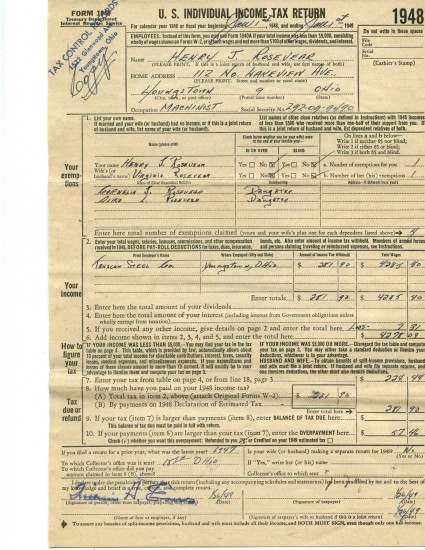 FORM 1040
Treasury Department
Internal Revenue Service
U. S. INDIVIDUAL INCOME TAX RETURN
1948
For calendar year 1948 or fiscal year beginning Jan 1st, 1948, and ending
EMPLOYEES: Instead of this form, you may use Form 1040A if your total income was less than $5,000, consisting wholly of wages shown on Forms W-2, or of such wages and not more than $100 of other wages, dividends, and interest.
Do not write in these spaces
TAX CONTROL RECORDS
Youngstown, Ohio
Copy
File Code
Serial No.
(Cashier's Stamp)
Name HENRY J. ROSEVEAR
(PLEASE PRINT. If this is a joint return of husband and wife, use first names of both)
HOME ADDRESS 112 No. HAZELWOOD AVE.
(PLEASE PRINT. Street and number or rural route)
YOUNGSTOWN 9 OHIO
(City, town, or post office) (Postal zone number) (State)
Occupation MACHINIST Social Security No.
Your exemptions
1. List your own name.
If married and your wife (or husband) had no income, or if this is a joint return of husband and wife, list name of your wife (or husband).
List names of other close relatives (as defined in Instructions) with 1948 incomes of less than $500 who received more than one-half of their support from you. If this is a joint return of husband and wife, list dependent relatives of both.
Name (please print)
65 OR OVER BLIND
On lines a and b—
Write 1 if neither 65 nor blind;
Write 2 if either 65 or blind;
Write 3 if both 65 and blind
Your name Henry J. Rosevear Yes No Yes No a. Number of exemptions for you 1
Wife's (or husband's) name Virginia Rosevear Yes No Yes No b. Number of her (his) exemptions 1
Name of Close Dependent Relative Relationship Address—if different from yours
CORNELIA J. ROSEVEAR Daughter
ROSEVEAR Daughter
Enter here total number of exemptions claimed (yours and your wife's plus one for each dependent listed above) 4
Your income
2. Enter your total wages, salaries, bonuses, commissions, and other compensation received in 1948, BEFORE PAY-ROLL DEDUCTIONS for taxes, dues, insurance, bonds, etc. Also enter amount of income tax withheld. Members of armed forces and persons claiming traveling or reimbursed expenses, see Instructions.
Print Employer's Name Where Employed (City and State) Amount of Income Tax Withheld Total Wages
Steel Co. Youngstown, Ohio $ 281 90 $ 4285 40
Enter totals $ 281 90 $ 4285 40
3. Enter here the total amount of your dividends
4. Enter here the total amount of your interest (including interest from Government obligations unless wholly exempt from taxation)
5. If you received any other income, give details on page 2 and enter the total here Loss- 7.31
6. Add income shown in items 2, 3, 4, and 5, and enter the total here $ 4278 09
How to figure your tax
IF YOUR INCOME WAS LESS THAN $5,000.—You may find your tax in the tax table on page 4. This table, which is provided by law, automatically allows about 10 percent of your total income for charitable contributions, interest, taxes, casualty losses, medical expenses, and miscellaneous expenses. If your expenditures and losses of these classes amount to more than 10 percent, it will usually be to your advantage to itemize them and compute your tax on page 3.
IF YOUR INCOME WAS $5,000 OR MORE.—Disregard the tax table and compute your tax on page 3. You may either take a standard deduction or itemize your deductions, whichever is to your advantage.
HUSBAND AND WIFE.—To obtain benefits of split-income provisions, husband and wife must file a joint return. If husband and wife file separate returns, and one itemizes deductions, the other must also itemize deductions.
Tax due or refund
7. Enter your tax from table on page 4, or from line 18, page 3 $ 224 44
8. How much have you paid on your 1948 income tax?
(A) Total tax in item 2, above (attach Original Forms W-2) $ 281 90
(B) By payments on 1948 Declaration of Estimated Tax
Enter total here 281 90
9. If your tax (item 7) is larger than payments (item 8), enter BALANCE OF TAX DUE here $
This balance of tax due must be paid in full with return.
10. If your payments (item 8) are larger than your tax (item 7), enter the OVERPAYMENT here $ 57 46
Check (✓) whether you want this overpayment: Refunded to you or Credited on your 1949 estimated tax
If you filed a return for a prior year, what was the latest year? 1947
To which Collector's office was it sent? 18th Ohio
To which Collector's office did you pay amount claimed in item 8 (B), above?
Is your wife (or husband) making a separate return for 1948? No
If "Yes," write her (or his) name
Collector's office
(Signature of taxpayer)
(Date)
(Name of firm or employer, if any)
To assure any benefits of split-income provisions, husband and wife must include all their income, and BOTH MUST SIGN, even though only one has income.